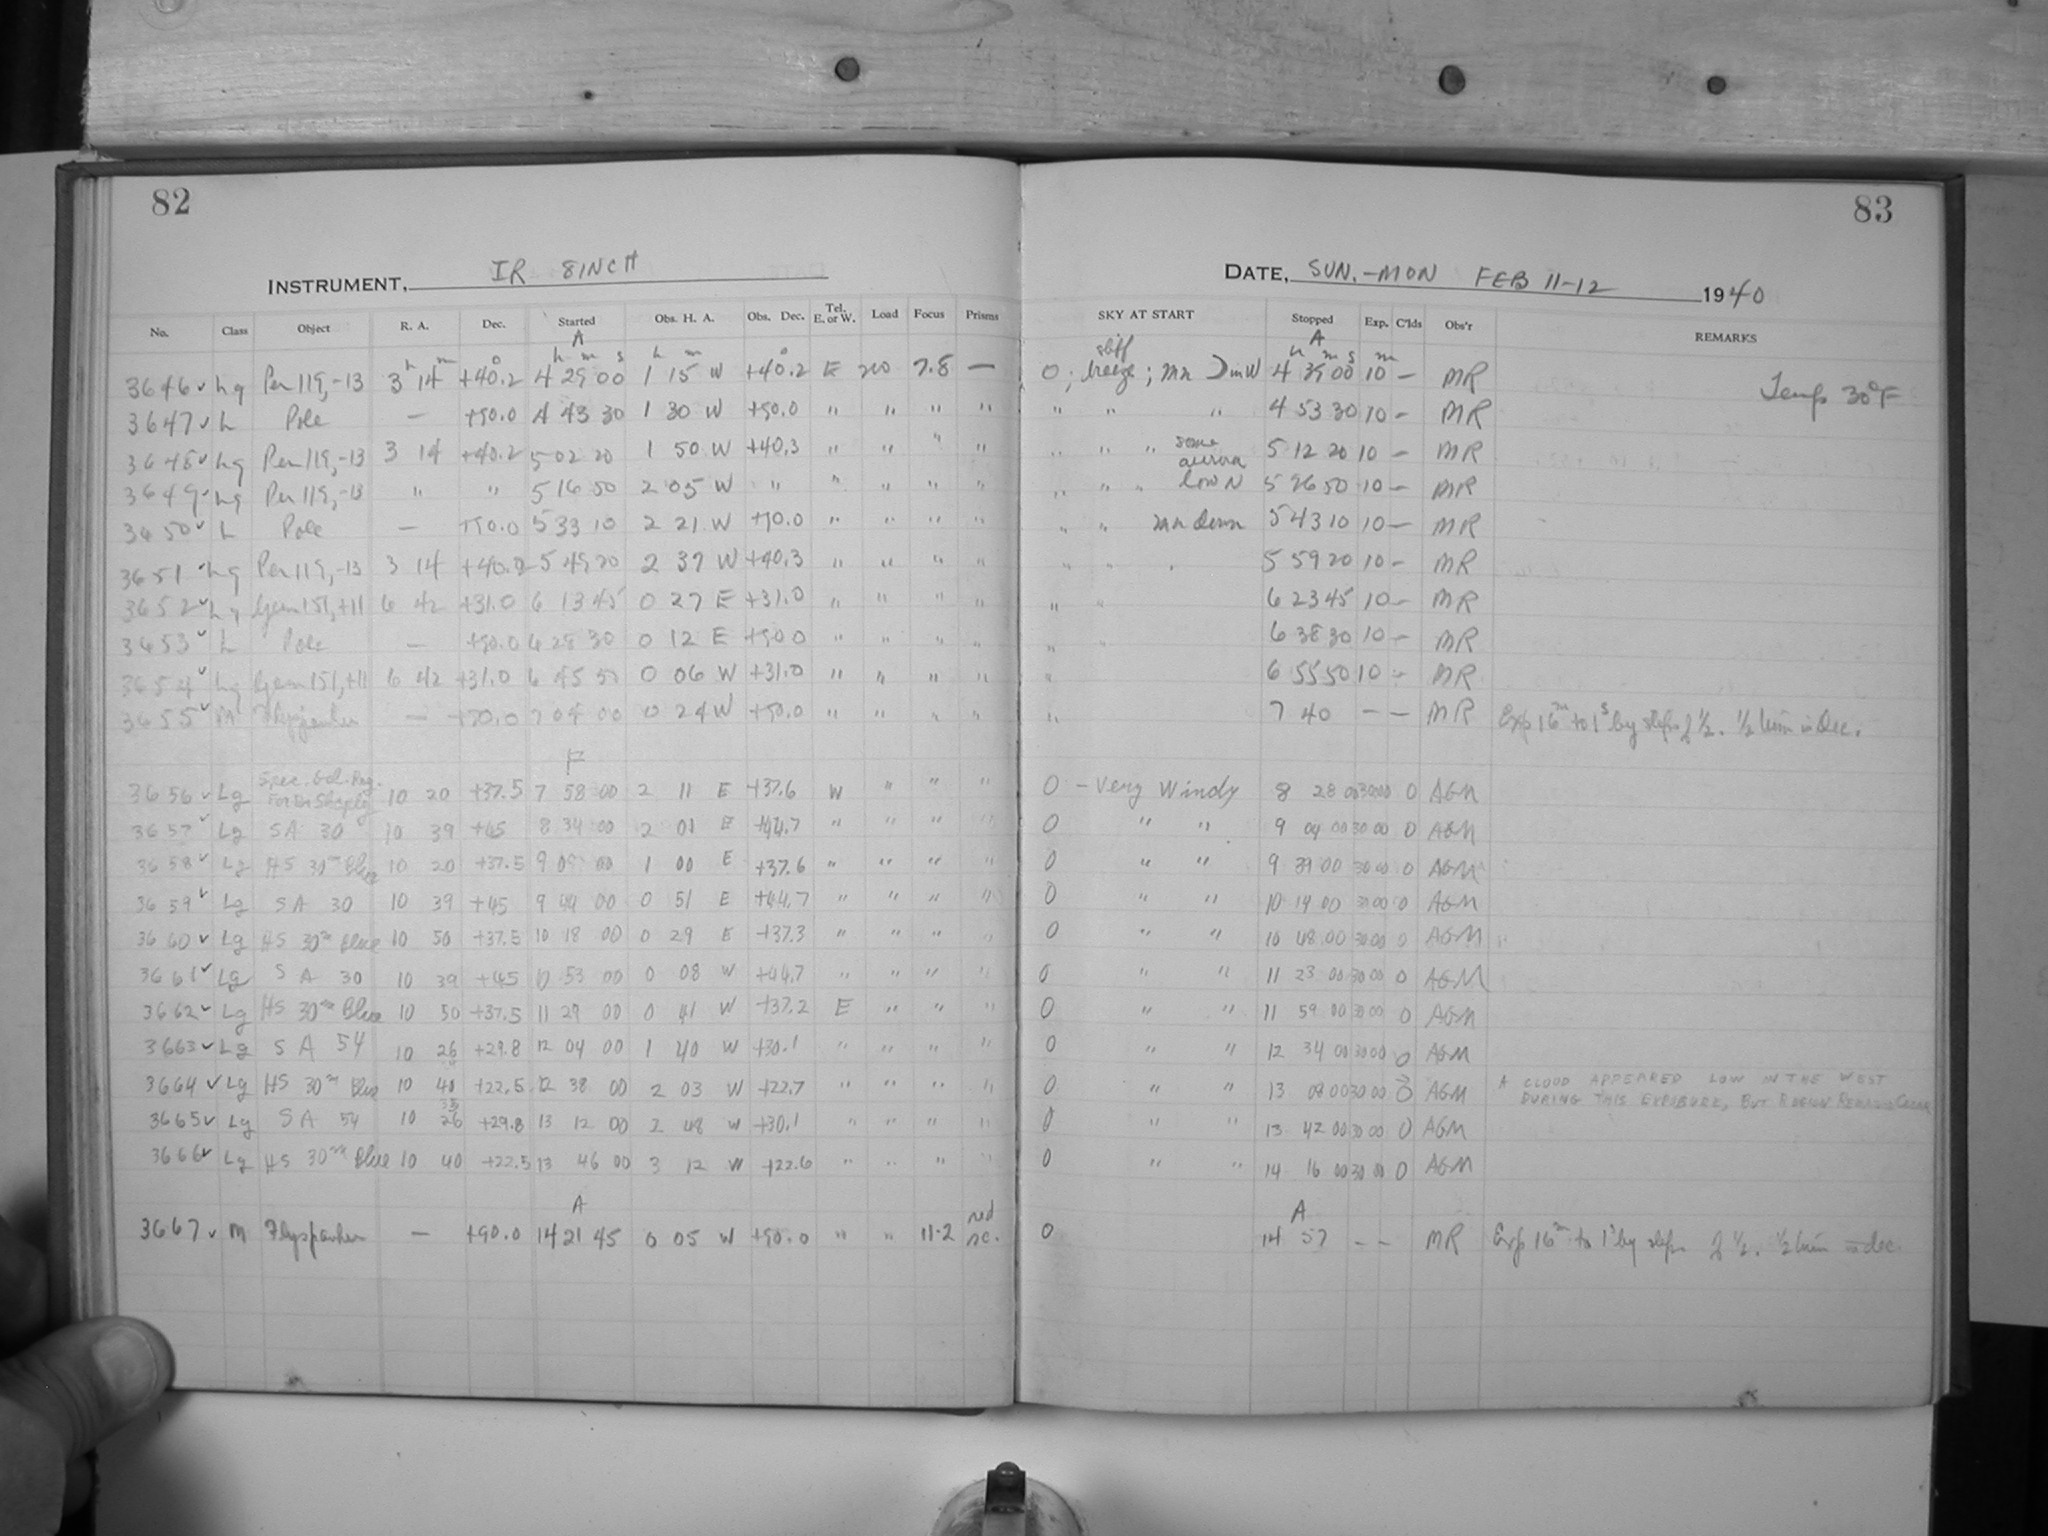 82
83
INSTRUMENT, IR 8INCH
DATE, SUN.-MON FEB 11-12 1940
No. Class Object R. A. Dec. Started Obs. H. A. Obs. Dec. Tel. E. or W. Load Focus Prisms SKY AT START Stopped Exp. C'lds Obs'r REMARKS
A A
h m o h m s h m o stiff h m s m
3646 ✓ Lg Per 119,-13 3 14 +40.2 4 29 00 1 15 W +40.2 E 7.8 — 0; breeze; mn in W 4 39 00 10 — MR Temp 30°F
3647 ✓ L Pole — +90.0 4 43 30 1 30 W +90.0 " " " " " " " 4 53 30 10 — MR
3648 ✓ Lg Per 119,-13 3 14 +40.2 5 02 20 1 50 W +40.3 " " " " " " " some aurora 5 12 20 10 — MR
3649 ✓ Lg Per 119,-13 " " 5 16 50 2 05 W " " " " " " " " low N 5 26 50 10 — MR
3650 ✓ L Pole — +90.0 5 33 10 2 21 W +90.0 " " " " " " mn down 5 43 10 10 — MR
3651 ✓ Lg Per 119,-13 3 14 +40.2 5 49 20 2 37 W +40.3 " " " " " " " 5 59 20 10 — MR
3652 ✓ Lg Gem 151,+11 6 42 +31.0 6 13 45 0 27 E +31.0 " " " " " " 6 23 45 10 — MR
3653 ✓ L Pole — +90.0 6 28 30 0 12 E +90.0 " " " " " " 6 38 30 10 — MR
3654 ✓ Lg Gem 151,+11 6 42 +31.0 6 45 50 0 06 W +31.0 " " " " " 6 55 50 10 — MR
3655 ✓ M Flyspanker — +90.0 7 04 00 0 24 W +90.0 " " " " " 7 40 — — MR Exp 16m to 1s by steps of ½. ½ in Dec.
F
3656 ✓ Lg Spec. Gal. Reg. For Dr Shapley 10 20 +37.5 7 58 00 2 11 E +37.6 W " " " 0 - Very Windy 8 28 00 30 00 0 AGM
3657 ✓ Lg SA 30 10 39 +45 8 34 00 2 01 E +44.7 " " " " 0 " " 9 04 00 30 00 0 AGM
3658 ✓ Lg HS 30m Blue 10 20 +37.5 9 09 00 1 00 E +37.6 " " " " 0 " " 9 39 00 30 00 0 AGM
3659 ✓ Lg SA 30 10 39 +45 9 44 00 0 51 E +44.7 " " " " 0 " " 10 14 00 30 00 0 AGM
3660 ✓ Lg HS 30m Blue 10 50 +37.5 10 18 00 0 29 E +37.3 " " " " 0 " " 10 48 00 30 00 0 AGM
3661 ✓ Lg SA 30 10 39 +45 10 53 00 0 08 W +44.7 " " " " 0 " " 11 23 00 30 00 0 AGM
3662 ✓ Lg HS 30m Blue 10 50 +37.5 11 29 00 0 41 W +37.2 E " " " 0 " " 11 59 00 30 00 0 AGM
3663 ✓ Lg SA 54 10 26 +29.8 12 04 00 1 40 W +30.1 " " " " 0 " " 12 34 00 30 00 0 AGM
3664 ✓ Lg HS 30m Blue 10 40 +22.5 12 38 00 2 03 W +22.7 " " " " 0 " " 13 08 00 30 00 0 AGM A CLOUD APPEARED LOW IN THE WEST
DURING THIS EXPOSURE, BUT REGION REMAINED CLEAR
3665 ✓ Lg SA 54 10 26 +29.8 13 12 00 2 48 W +30.1 " " " " 0 " " 13 42 00 30 00 0 AGM
3666 ✓ Lg HS 30m Blue 10 40 +22.5 13 46 00 3 12 W +22.6 " " " " 0 " " 14 16 00 30 00 0 AGM
A red A
3667 ✓ M Flyspanker — +90.0 14 21 45 0 05 W +90.0 " " 11.2 nc. 0 14 57 — — MR Exp 16m to 1s by steps of ½. ½ in dec.